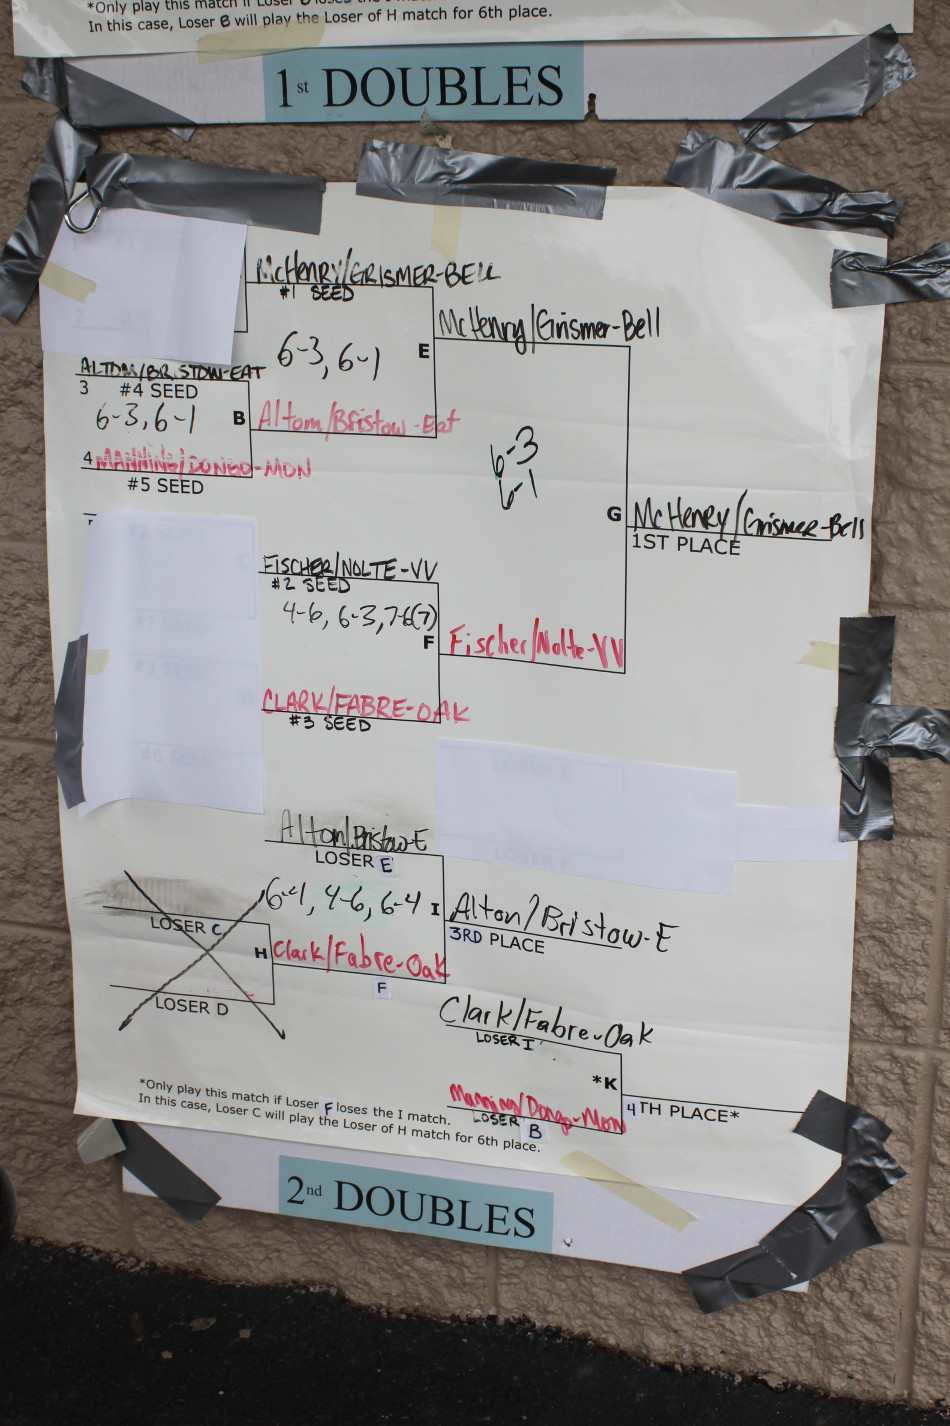 *Only play this match if Loser B loses the I match.
In this case, Loser B will play the Loser of H match for 6th place.
1st DOUBLES
McHENRY/GRISMER-BELL
#1 SEED
McHenry/Grismer-Bell
6-3, 6-1
E
2
ALTOM/BRISTOW-EAT
3 #4 SEED
6-3, 6-1
B
Altom/Bristow-Eat
4 MANNING/DONGO-MON
#5 SEED
6-3
6-1
G
McHenry/Grismer-Bell
1ST PLACE
#2 SEED
FISCHER/NOLTE-VV
#2 SEED
4-6, 6-3, 7-6(7)
F
Fischer/Nolte-VV
#3 SEED
CLARK/FABRE-OAK
#3 SEED
#6 SEED
LOSER E
LOSER F
Altom/Bristow-E
LOSER E
6-1, 4-6, 6-4
I
Altom/Bristow-E
3RD PLACE
LOSER C
H
Clark/Fabre-Oak
F
LOSER D
Clark/Fabre-Oak
LOSER I
*K
4TH PLACE*
Manning/Dongo-Mon
LOSER B
*Only play this match if Loser F loses the I match.
In this case, Loser C will play the Loser of H match for 6th place.
2nd DOUBLES